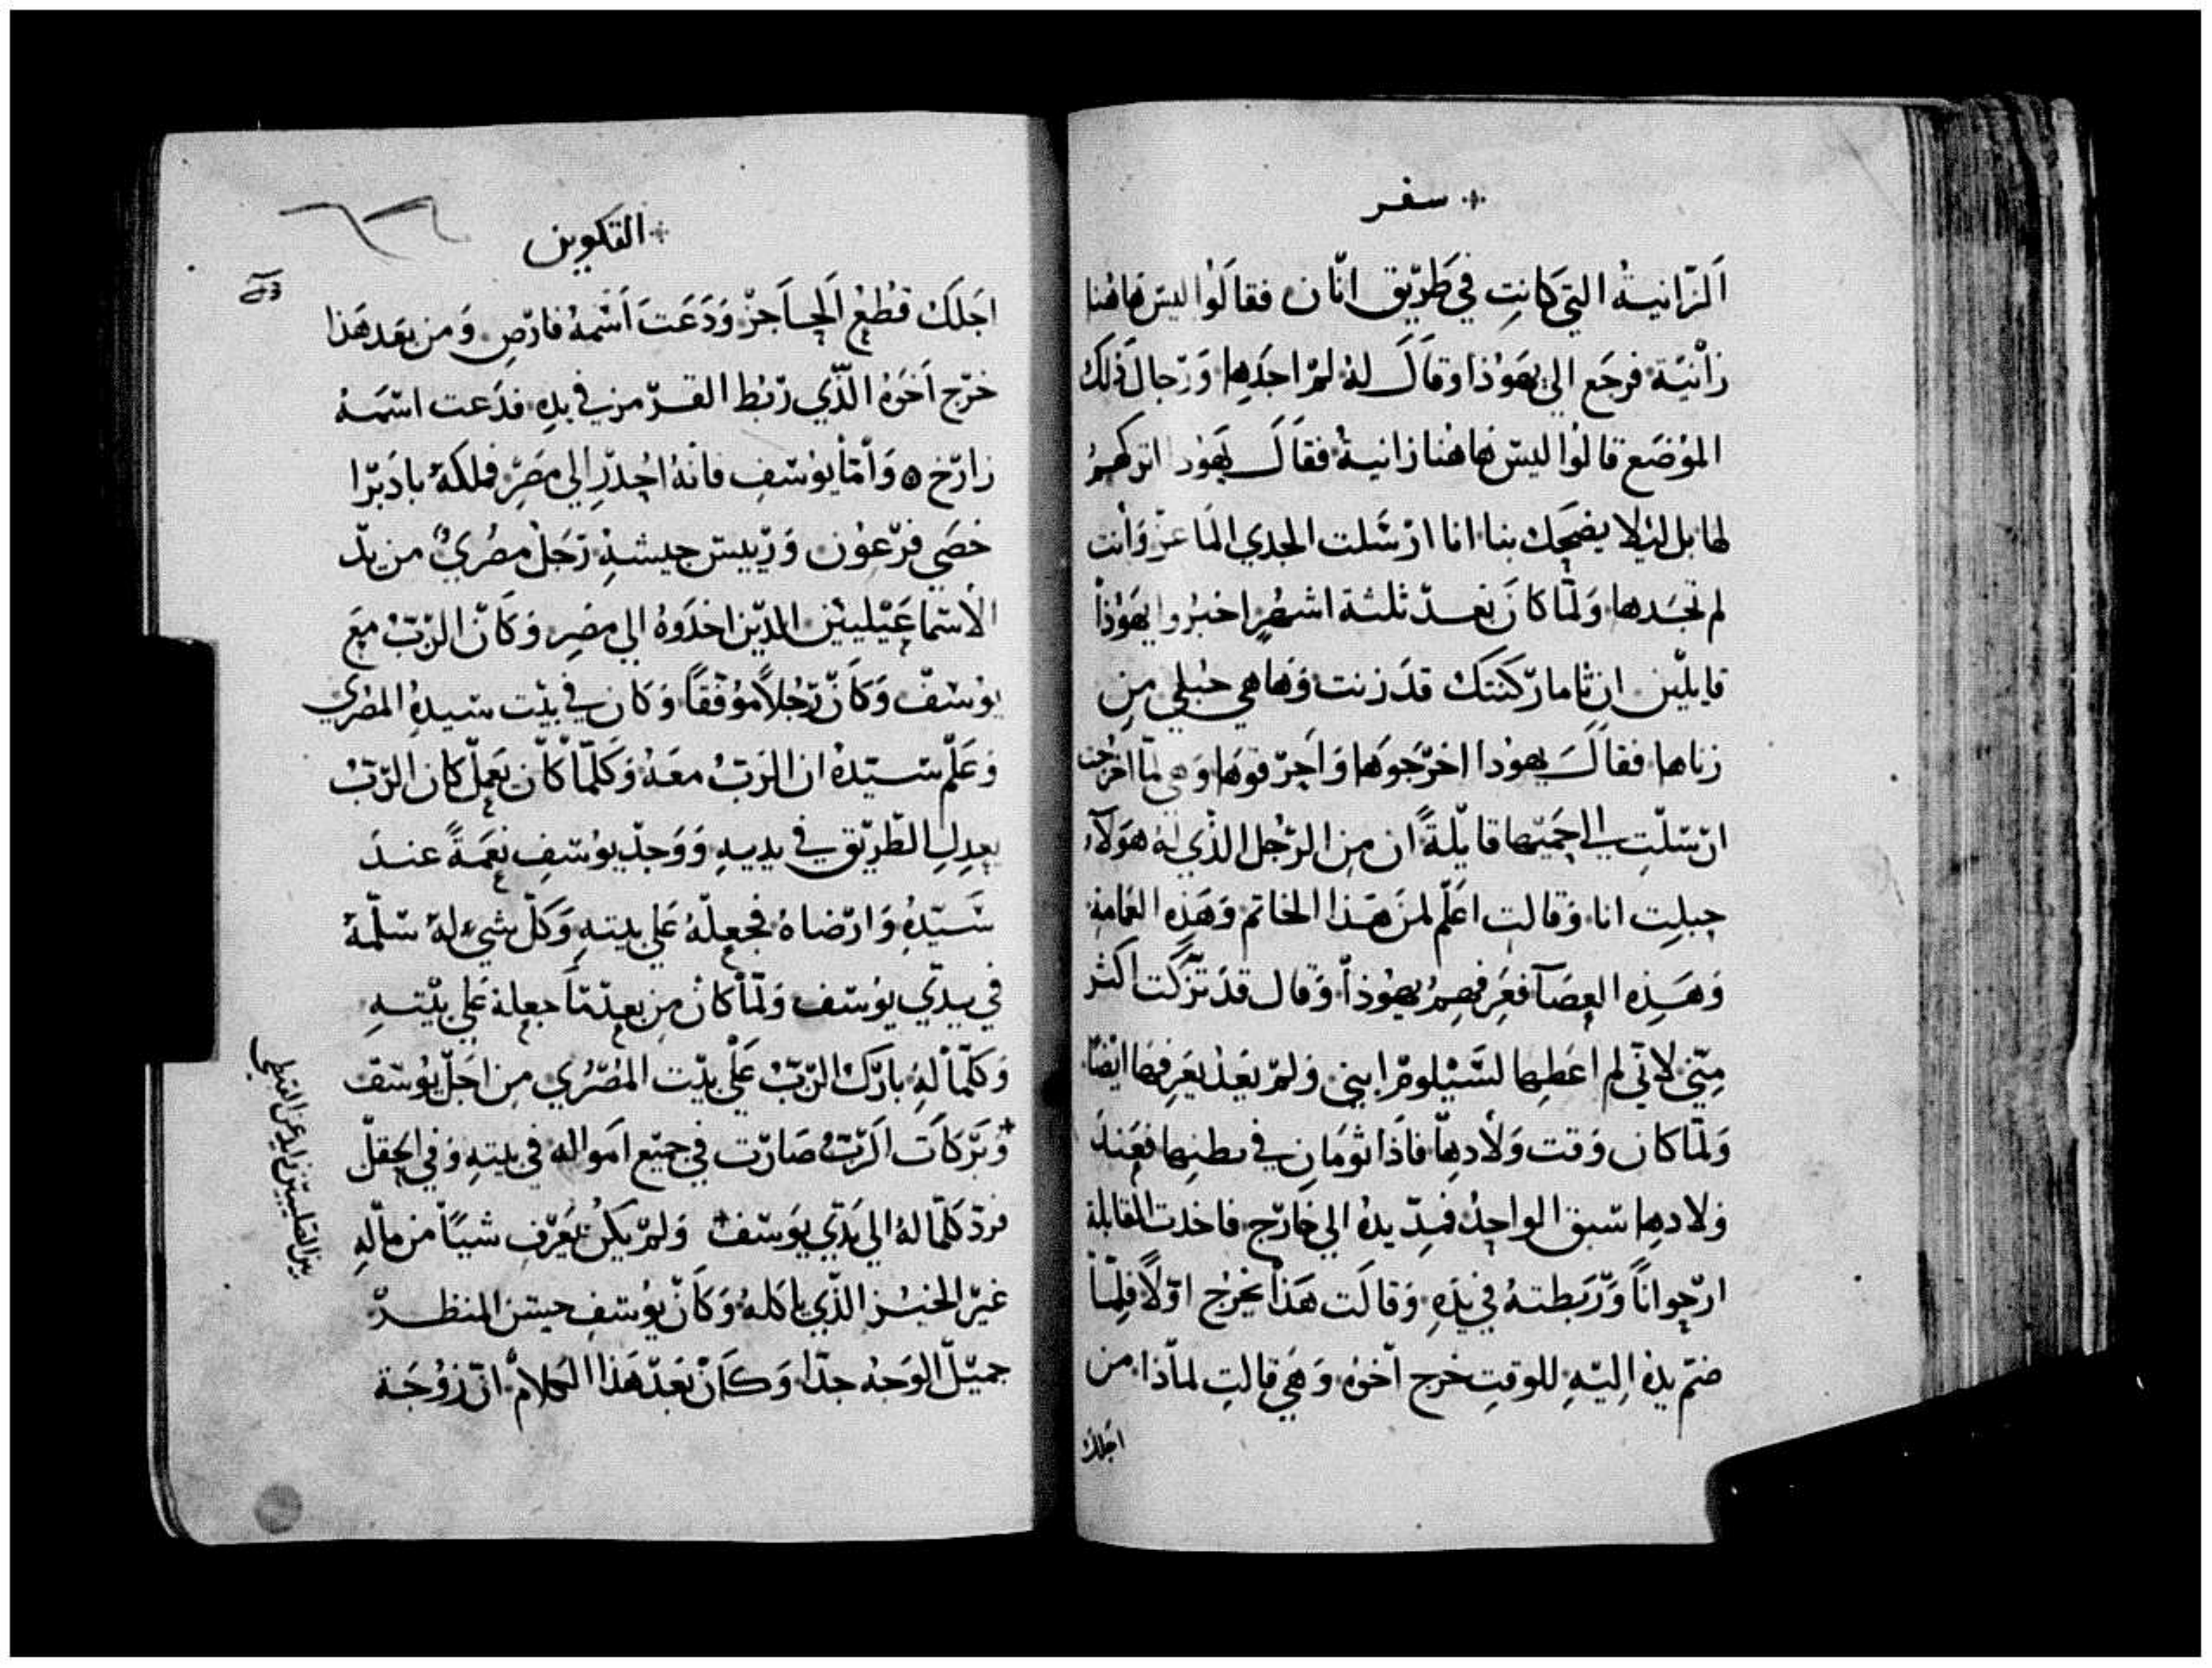 سفر
اَلزّانيةُ التي كانتِ في طَرّيق انّان فقالَوُا ليسَ هاهُنا
زاْنيّة فرجَع الي يهَوُذا وقاَلَ لهُ لمرْ اجدَها وَرّجالَ ذلكَ
الموُضَع قالوُا ليسّ هَاهُنا زانيةُ فقاَلَ يهَوُدا اتركهمُ
لها بل ليُلا يضحَك بنا انا ارْسَلت الجدي الماعزْ وَاْنت
لم تجَدها وَلمّا كانَ بَعدّ ثلثة اشهُرٍ اخبرُوا يهَوُذاْ
قايليّن ان ثامارّ كنتكَ قدَ زنت وَهاهي حُبلي منِ
زناها فقالَ يهوُدا اخرّجَوهَا وَاحرّقوهَا وَهي لمّا اخرُجت
ارْسَلّتِ الي حميّها قايلّةً ان منِ الرّجُل الذّي لهُ هوَلآء
حبلِت انا وَقالت اعَلّم لمنَ هَذا الخاتم وَهَذِه العمَامة
وَهَذِه العصَا فعَرفهمُ يهوُذاً وَقال قدَ تزّكّت اكثر
منّي لانّي لم اعَطيها لسَّيْلومرّ ابني وَلمرْ يعَدُ يعَرفهَا ايضًا
وَلمّا كان وَقت وَلادِها فاذَا توُمَانِ في بطنِها فعَندَ
وَلادها سّبق الواحدُ فمدّ يدهُ الي خارّج فاخدت القابلة
ارْجوانًا وَّرَبَطتهُ في يدَهِ وَقالَت هَذاْ يخَرُج اوّلاً فلمّاْ
ضمّ يدهُ اليّهِ للوقتِ خرج اّخوهُ وَهيَ قالتِ لماّذا من
اجَلكَ
التكوين
اجَلكَ قطُعِ اَلحاَجزْ وَدَعَتَ اَسْمهُ فارّص وَمن بعَد هَذا
خرّج اَخوَهُ الذّي رّبُط القرّمزِ في يدهِ فدَعت اسّمَهُ
زارّخ ٥ وَاْمّا يوُسّفِ فانهُ احُدرّ الي مصَرْ فملكهُ بادَبرّا
خصَي فرّعوُن وَرّييسّ جيشهِ رّجَلْ مصُريٌ من يدّ
الاسّماعَيْليّين الذيّن اخدَوهُ الي مصَرِ وَكانّ الرّبّ معَ
يوُسّفْ وَكانّ رّجُلاً موُفّقاً وَكان في بيّت سّيدهِ المصُري
وَعَلّم سّيّدهُ ان الرَبّ معَهُ وَكَلّمّا كان يعَملّ كان الرّبّ
يعدلِ الطّريّق في يديهِ وَوَجدّ يوُسّفِ نعِمةً عندَ
سَّيّدهُ وَارّضاهُ فجعلّهُ عَلي بيتهِ وَكلّ شيء لهُ سّلّمهُ
في يدّي يوُسّف وَلمّا كانْ من بعدّ ما جعلهُ عَلي بيّتهِ
وَكلّما لهُ باركَ الرّبّ عَلْي بيّت المصُرّي منِ اجَلّ يوُسّف
وُبرّكاَت اَلرّبّ صَارّت في جميّع اموَالهِ في بيتهِ وَفي الحقلّ
فردّ كلّما لهُ الي يدَّي يوَسّف وَلمرْ يكنُ يعَرّف شيّاً من مالّهِ
غيرّ الخبُز الذّي ياكلهُ وَكانّ يوُسّفِ حسّن المنظرّ
جميّلّ الوَجهُ جدّا وَكانْ بعَدّ هَذا الكلامْ انّ زوُجَة
بين الصَليبيّن زايد عن القبطي